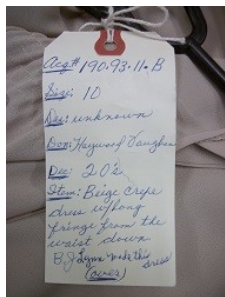 Acq# 190.93.11.B
Size: 10
Des: unknown
Don: Haywood Vaughan
Dec: 20's
Item: Beige crepe
dress w/long
fringe from the
waist down
B.J. Lynn made this
dress
(over)